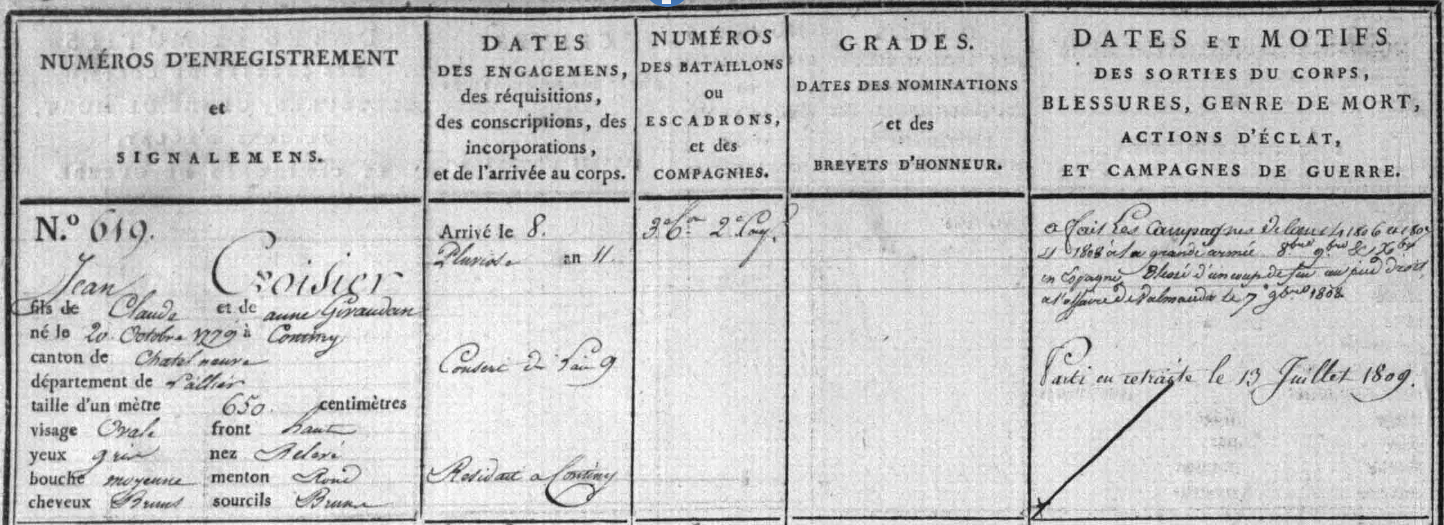 NUMÉROS D'ENREGISTREMENT
et
SIGNALEMENS.
DATES
DES ENGAGEMENS,
des réquisitions,
des conscriptions, des
incorporations,
et de l'arrivée au corps.
NUMÉROS
DES BATAILLONS
ou
ESCADRONS,
et des
COMPAGNIES.
GRADES.
DATES DES NOMINATIONS
et des
BREVETS D'HONNEUR.
DATES ET MOTIFS
DES SORTIES DU CORPS,
BLESSURES, GENRE DE MORT,
ACTIONS D'ÉCLAT,
ET CAMPAGNES DE GUERRE.
N.º 619.
Jean Croisier
fils de Claude et de anne Giraudan
né le 20 Octobre 1779 à Continy
canton de Chatel neuve
département de l'allier
taille d'un mètre 650 centimètres
visage Ovale front haut
yeux gris nez Relevé
bouche moyenne menton Rond
cheveux Bruns sourcils Bruns
Arrivé le 8.
Pluviose an 11
Conscrit de l'an 9
Residant a Continy
3e. b.on 2e. Comp.
a fait Les Campagnes de 1806 et 1807
et 1808 à la grande armée 8bre 9bre & Xbre
en Espagne Blessé d'un coup de feu au pied droit
a l'affaire de Valmaseda le 7 9bre 1808.
Parti en retraite le 13 Juillet 1809.